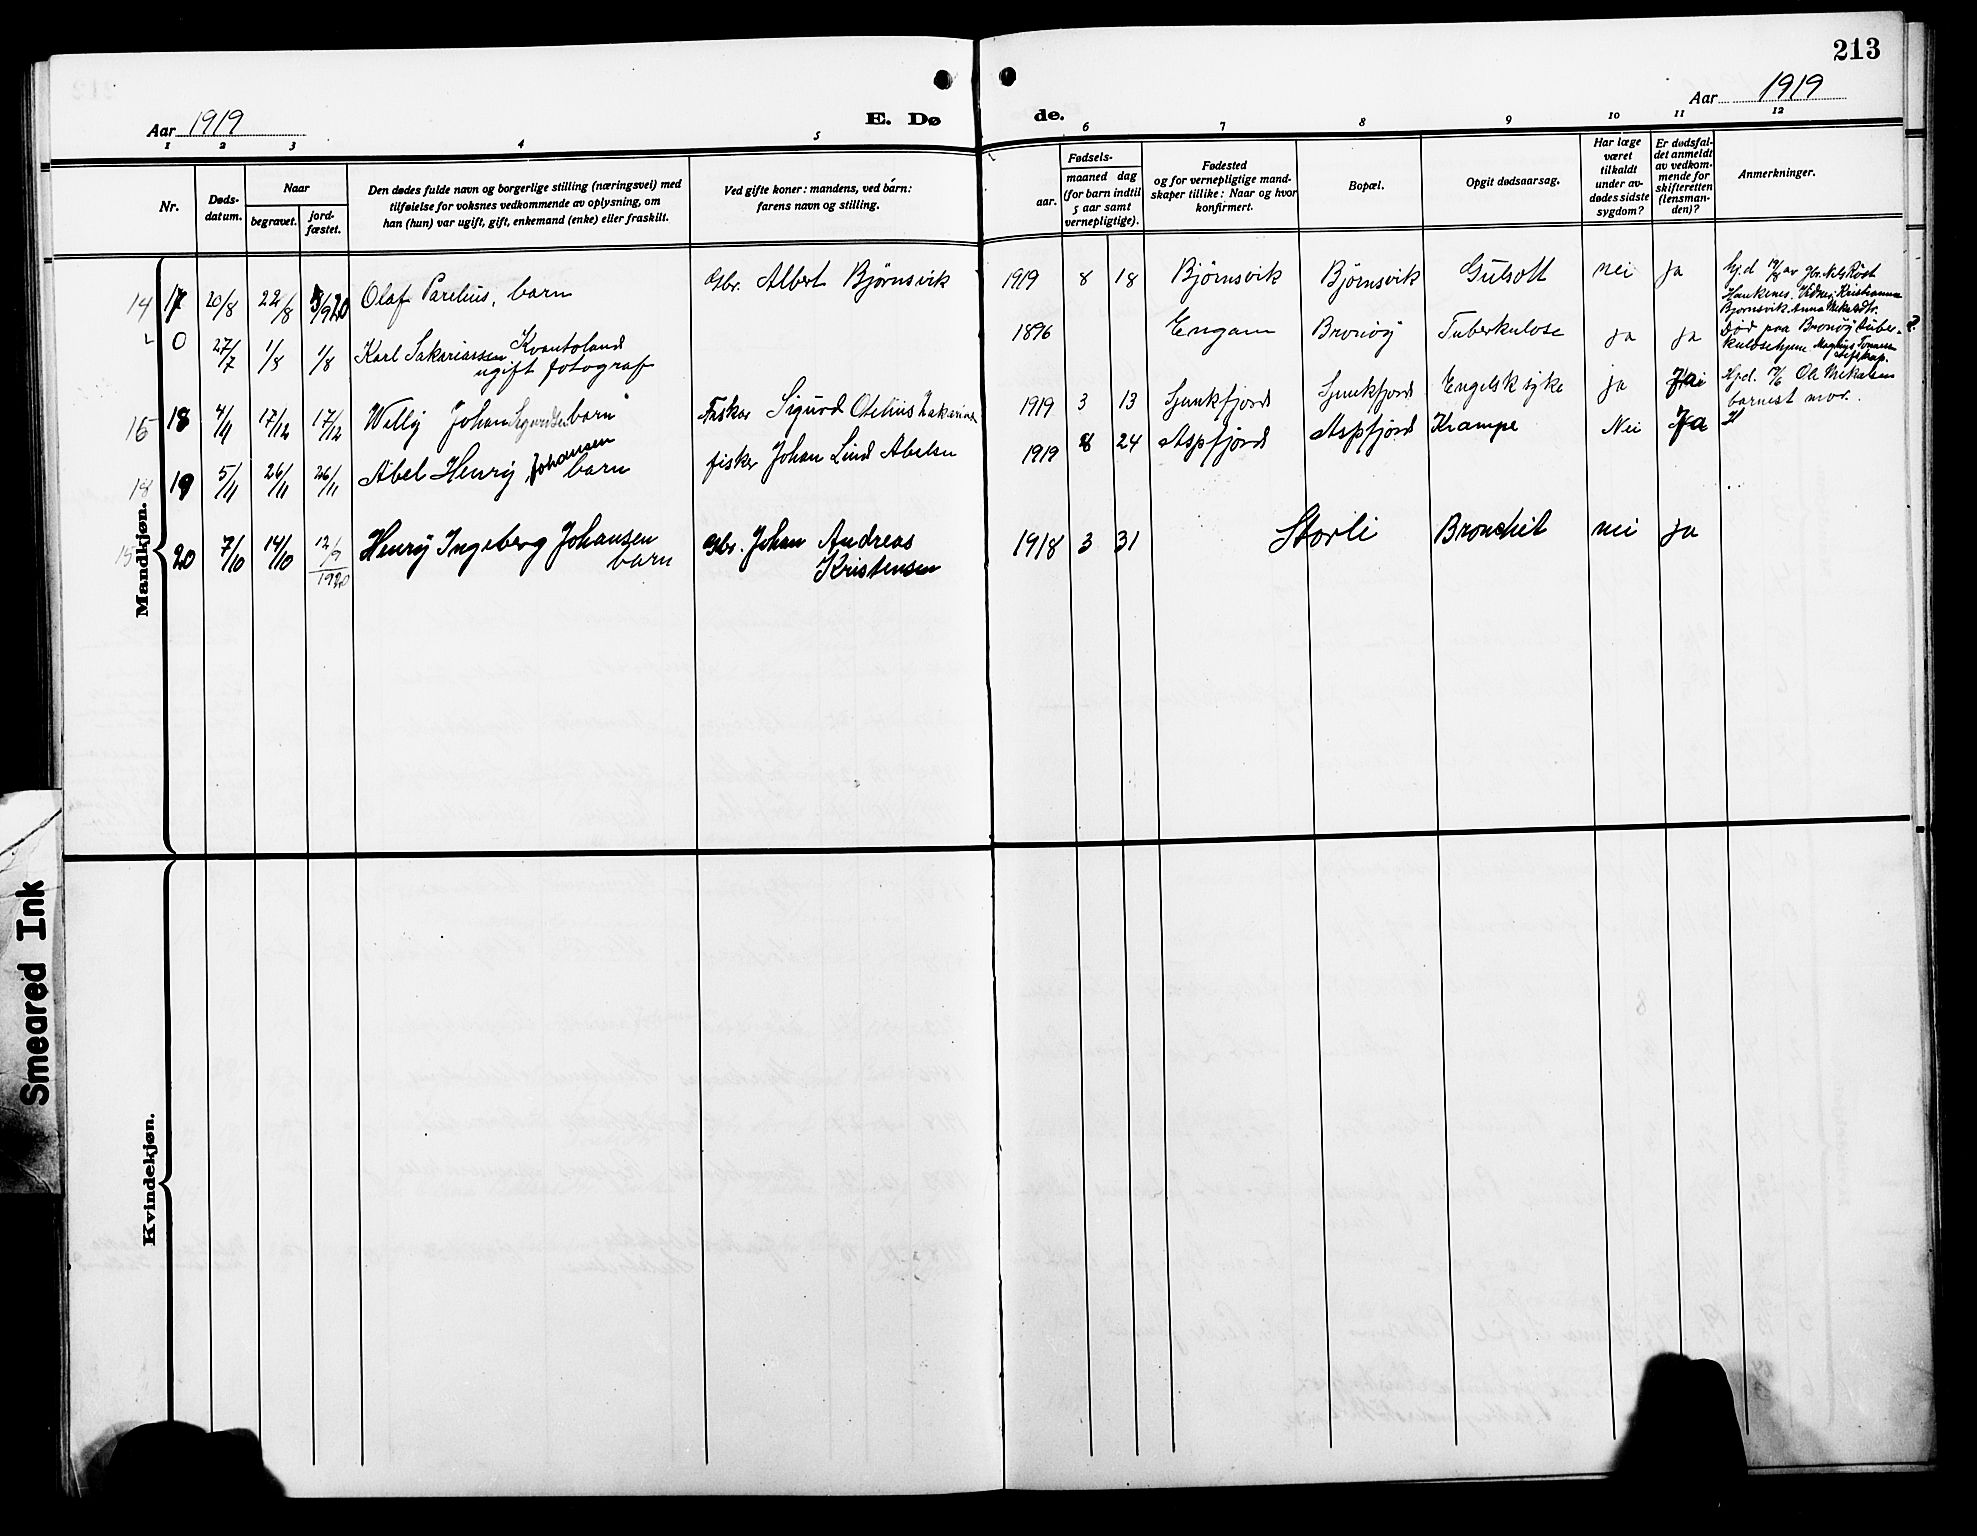 213
Aar 1919
E. Dø
de.
Aar 1919
1 2 3 4 5 6 7 8 9 10 11 12
Nr.
Døds-
datum.
Naar
begravet.
jord-
fæstet.
Den dødes fulde navn og borgerlige stilling (næringsvei) med
tilføielse for voksnes vedkommende av oplysning, om
han (hun) var ugift, gift, enkemand (enke) eller fraskilt.
Ved gifte koner: mandens, ved barn:
farens navn og stilling.
Fødsels-
aar.
maaned dag
(for barn indtil
5 aar samt
vernepligtige).
Fødested
og for vernepligtige mand-
skaper tillike: Naar og hvor
konfirmert.
Bopæl.
Opgit dødsaarsag.
Har læge
været
tilkaldt
under av-
dødes sidste
sygdom?
Er dødsfal-
det anmeldt
av vedkom-
mende for
skifteretten
(lensman-
den)?
Anmerkninger.
Mandkjøn.
14 17 20/8 22/8 5/9 20 Olaf Parelius, barn Gbr. Albert Bjørnsvik 1919 8 18 Bjørnsvik Bjørnsvik Gulsott nei ja
hj.d 19/8 av gbr. Nels Røst
Haukenes. Vidner: Kristianna
Bjørnsvik. Anna Mikalsdtr.
0 27/7 1/8 1/8 Karl Sakariassen Kvantoland
ugift fotograf
1896 Engam Bronøy Tuberkulose ja ja
Død paa Brønøy tuber-
kulosehjem
?
16 18 4/11 17/12 17/12 Willy Johan Sigurdsen barn Fisker Sigurd Otelius Zakariasen 1919 3 13 Sjunkfjord Sjunkfjord Engelsk syke ja Ja
Hjd. Ole Mikalsen
barnets mor.
18 19 5/11 26/11 26/11 Abel Henry, Johansen barn fisker Johan Lind Abelsen 1919 8 24 Aspfjord Aspfjord Krampe Nei Ja
15 20 7/10 14/10 12/9 1920 Henry Ingeberg Johansen
barn
Gbr. Johan Andreas
Kristensen
1918 3 31 Storli Bronchit nei ja
Kvindekjøn.
Smeared Ink